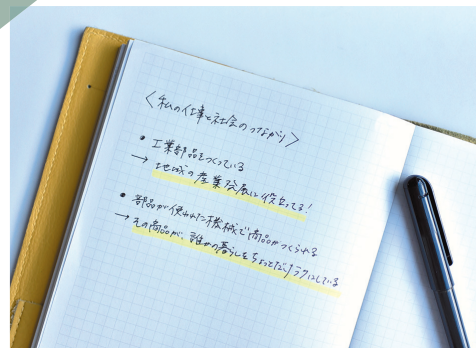 〈私の仕事と社会のつながり〉
• 工業部品をつくっている
→ 地域の産業発展に役立ってる!
• 部品が使われた機械で商品がつくられる
→ その商品が、誰かの暮らしをちょっとだけラクにしている